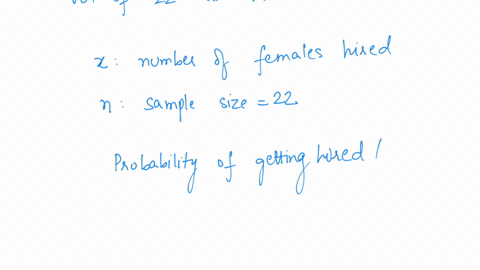 of 22
x: number of females hired
n: sample size = 22
Probability of getting hired /